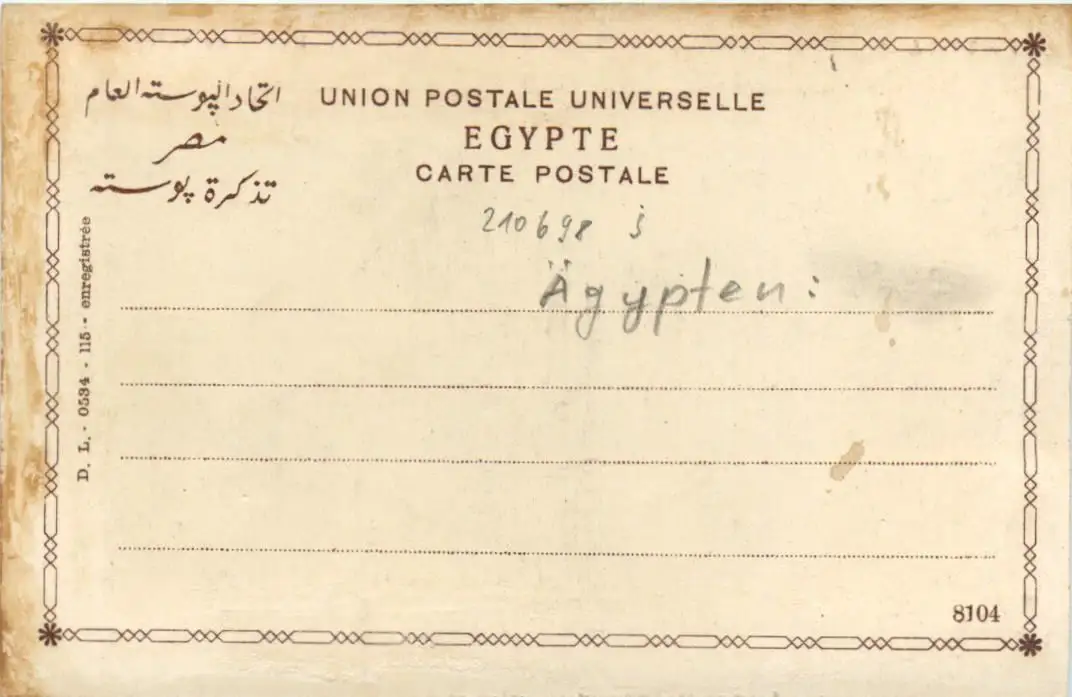 اتحاد البوسته العام
مصر
تذكرة بوسته
UNION POSTALE UNIVERSELLE
EGYPTE
CARTE POSTALE
210698 j
Ägypten:
D. L. - 0534 - 115 - enregistrée
8104